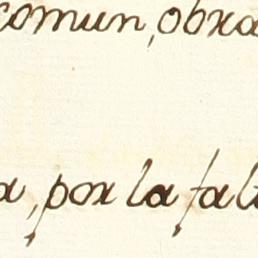 comun, obra
a, por la fal